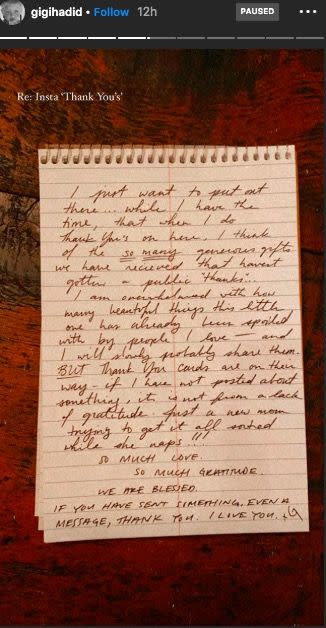 gigihadid • Follow 12h
PAUSED
Re: Insta 'Thank You's'
I just want to put out
there... while I have the
time, that when I do
Thank You's on here, I think
of the so many generous gifts
we have recieved that haven't
gotten a public 'thanks'...
I am overwhelmed with how
many beautiful things this little
one has already been spoiled
with by people I love — and
I will slowly probably share them.
BUT Thank You cards are on their
way - if I have not posted about
something, it is not from a lack
of gratitude. Just a new mom
trying to get it all sorted
while she naps!!!
SO MUCH LOVE.
SO MUCH GRATITUDE.
WE ARE BLESSED.
IF YOU HAVE SENT SOMETHING, EVEN A
MESSAGE, THANK YOU. I LOVE YOU. G